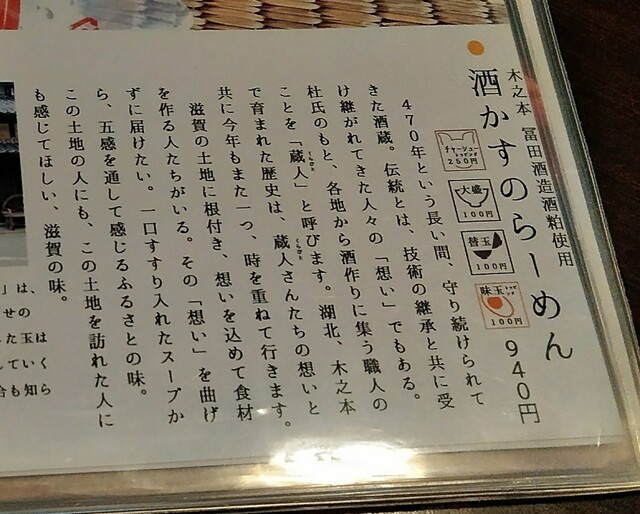 木之本　冨田酒造酒粕使用
酒かすのらーめん
940円
チャーシュー
トッピング
250円
大盛
100円
替玉
100円
味玉トッピング
100円
470年という長い間、守り続けられて
きた酒蔵。伝統とは、技術の継承と共に受
け継がれてきた人々の「想い」でもある。
杜氏のもと、各地から酒作りに集う職人の
ことを「蔵人」と呼びます。湖北、木之本
くらびと
で育まれた歴史は、蔵人さんたちの想いと
くらびと
共に今年もまた一つ、時を重ねて行きます。
滋賀の土地に根付き、想いを込めて食材
を作る人たちがいる。その「想い」を曲げ
ずに届けたい。一口すすり入れたスープか
ら、五感を通して感じるふるさとの味。
この土地の人にも、この土地を訪れた人に
も感じてほしい、滋賀の味。